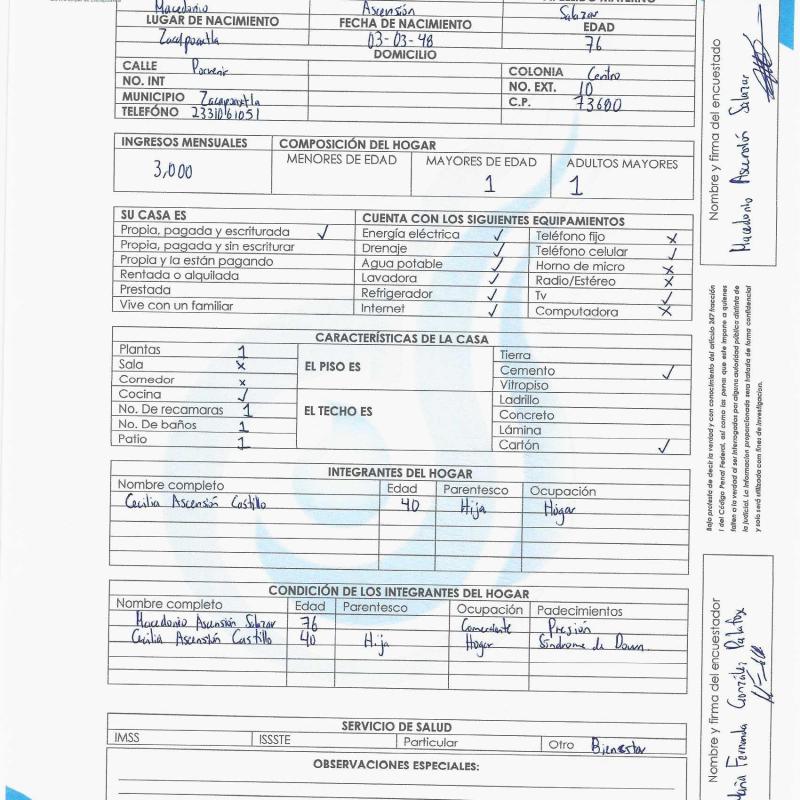 Macedonio Ascensión Salazar
LUGAR DE NACIMIENTO FECHA DE NACIMIENTO EDAD
Zacapoaxtla 03-03-48 76
DOMICILIO
CALLE Porvenir COLONIA Centro
NO. INT NO. EXT. 10
MUNICIPIO Zacapoaxtla C.P. 73680
TELEFÓNO 2331061051
INGRESOS MENSUALES COMPOSICIÓN DEL HOGAR
3,000 MENORES DE EDAD MAYORES DE EDAD ADULTOS MAYORES
1 1
SU CASA ES CUENTA CON LOS SIGUIENTES EQUIPAMIENTOS
Propia, pagada y escriturada ✓ Energía eléctrica ✓ Teléfono fijo x
Propia, pagada y sin escriturar Drenaje ✓ Teléfono celular ✓
Propia y la están pagando Agua potable ✓ Horno de micro x
Rentada o alquilada Lavadora ✓ Radio/Estéreo x
Prestada Refrigerador ✓ Tv ✓
Vive con un familiar Internet ✓ Computadora x
CARACTERÍSTICAS DE LA CASA
Plantas 1 EL PISO ES Tierra
Sala x Cemento ✓
Comedor x Vitropiso
Cocina ✓ EL TECHO ES Ladrillo
No. De recamaras 1 Concreto
No. De baños 1 Lámina
Patio 1 Cartón ✓
INTEGRANTES DEL HOGAR
Nombre completo Edad Parentesco Ocupación
Cecilia Ascensión Castillo 40 Hija Hogar
CONDICIÓN DE LOS INTEGRANTES DEL HOGAR
Nombre completo Edad Parentesco Ocupación Padecimientos
Macedonio Ascensión Salazar 76 Comerciante Presión
Cecilia Ascensión Castillo 40 Hija Hogar Síndrome de Down.
SERVICIO DE SALUD
IMSS ISSSTE Particular Otro Bienestar
OBSERVACIONES ESPECIALES:
Nombre y firma del encuestado
Macedonio Ascensión Salazar
Bajo protesta de decir la verdad y con conocimiento del artículo 247 fracción
I del Código Penal Federal, así como las penas que este impone a quienes
falten a la verdad al ser interrogados por alguna autoridad pública distinta de
la judicial. La información proporcionada sera tratada de forma confidencial
y solo será utilizada con fines de investigación.
Nombre y firma del encuestador
Fernanda González Palafox